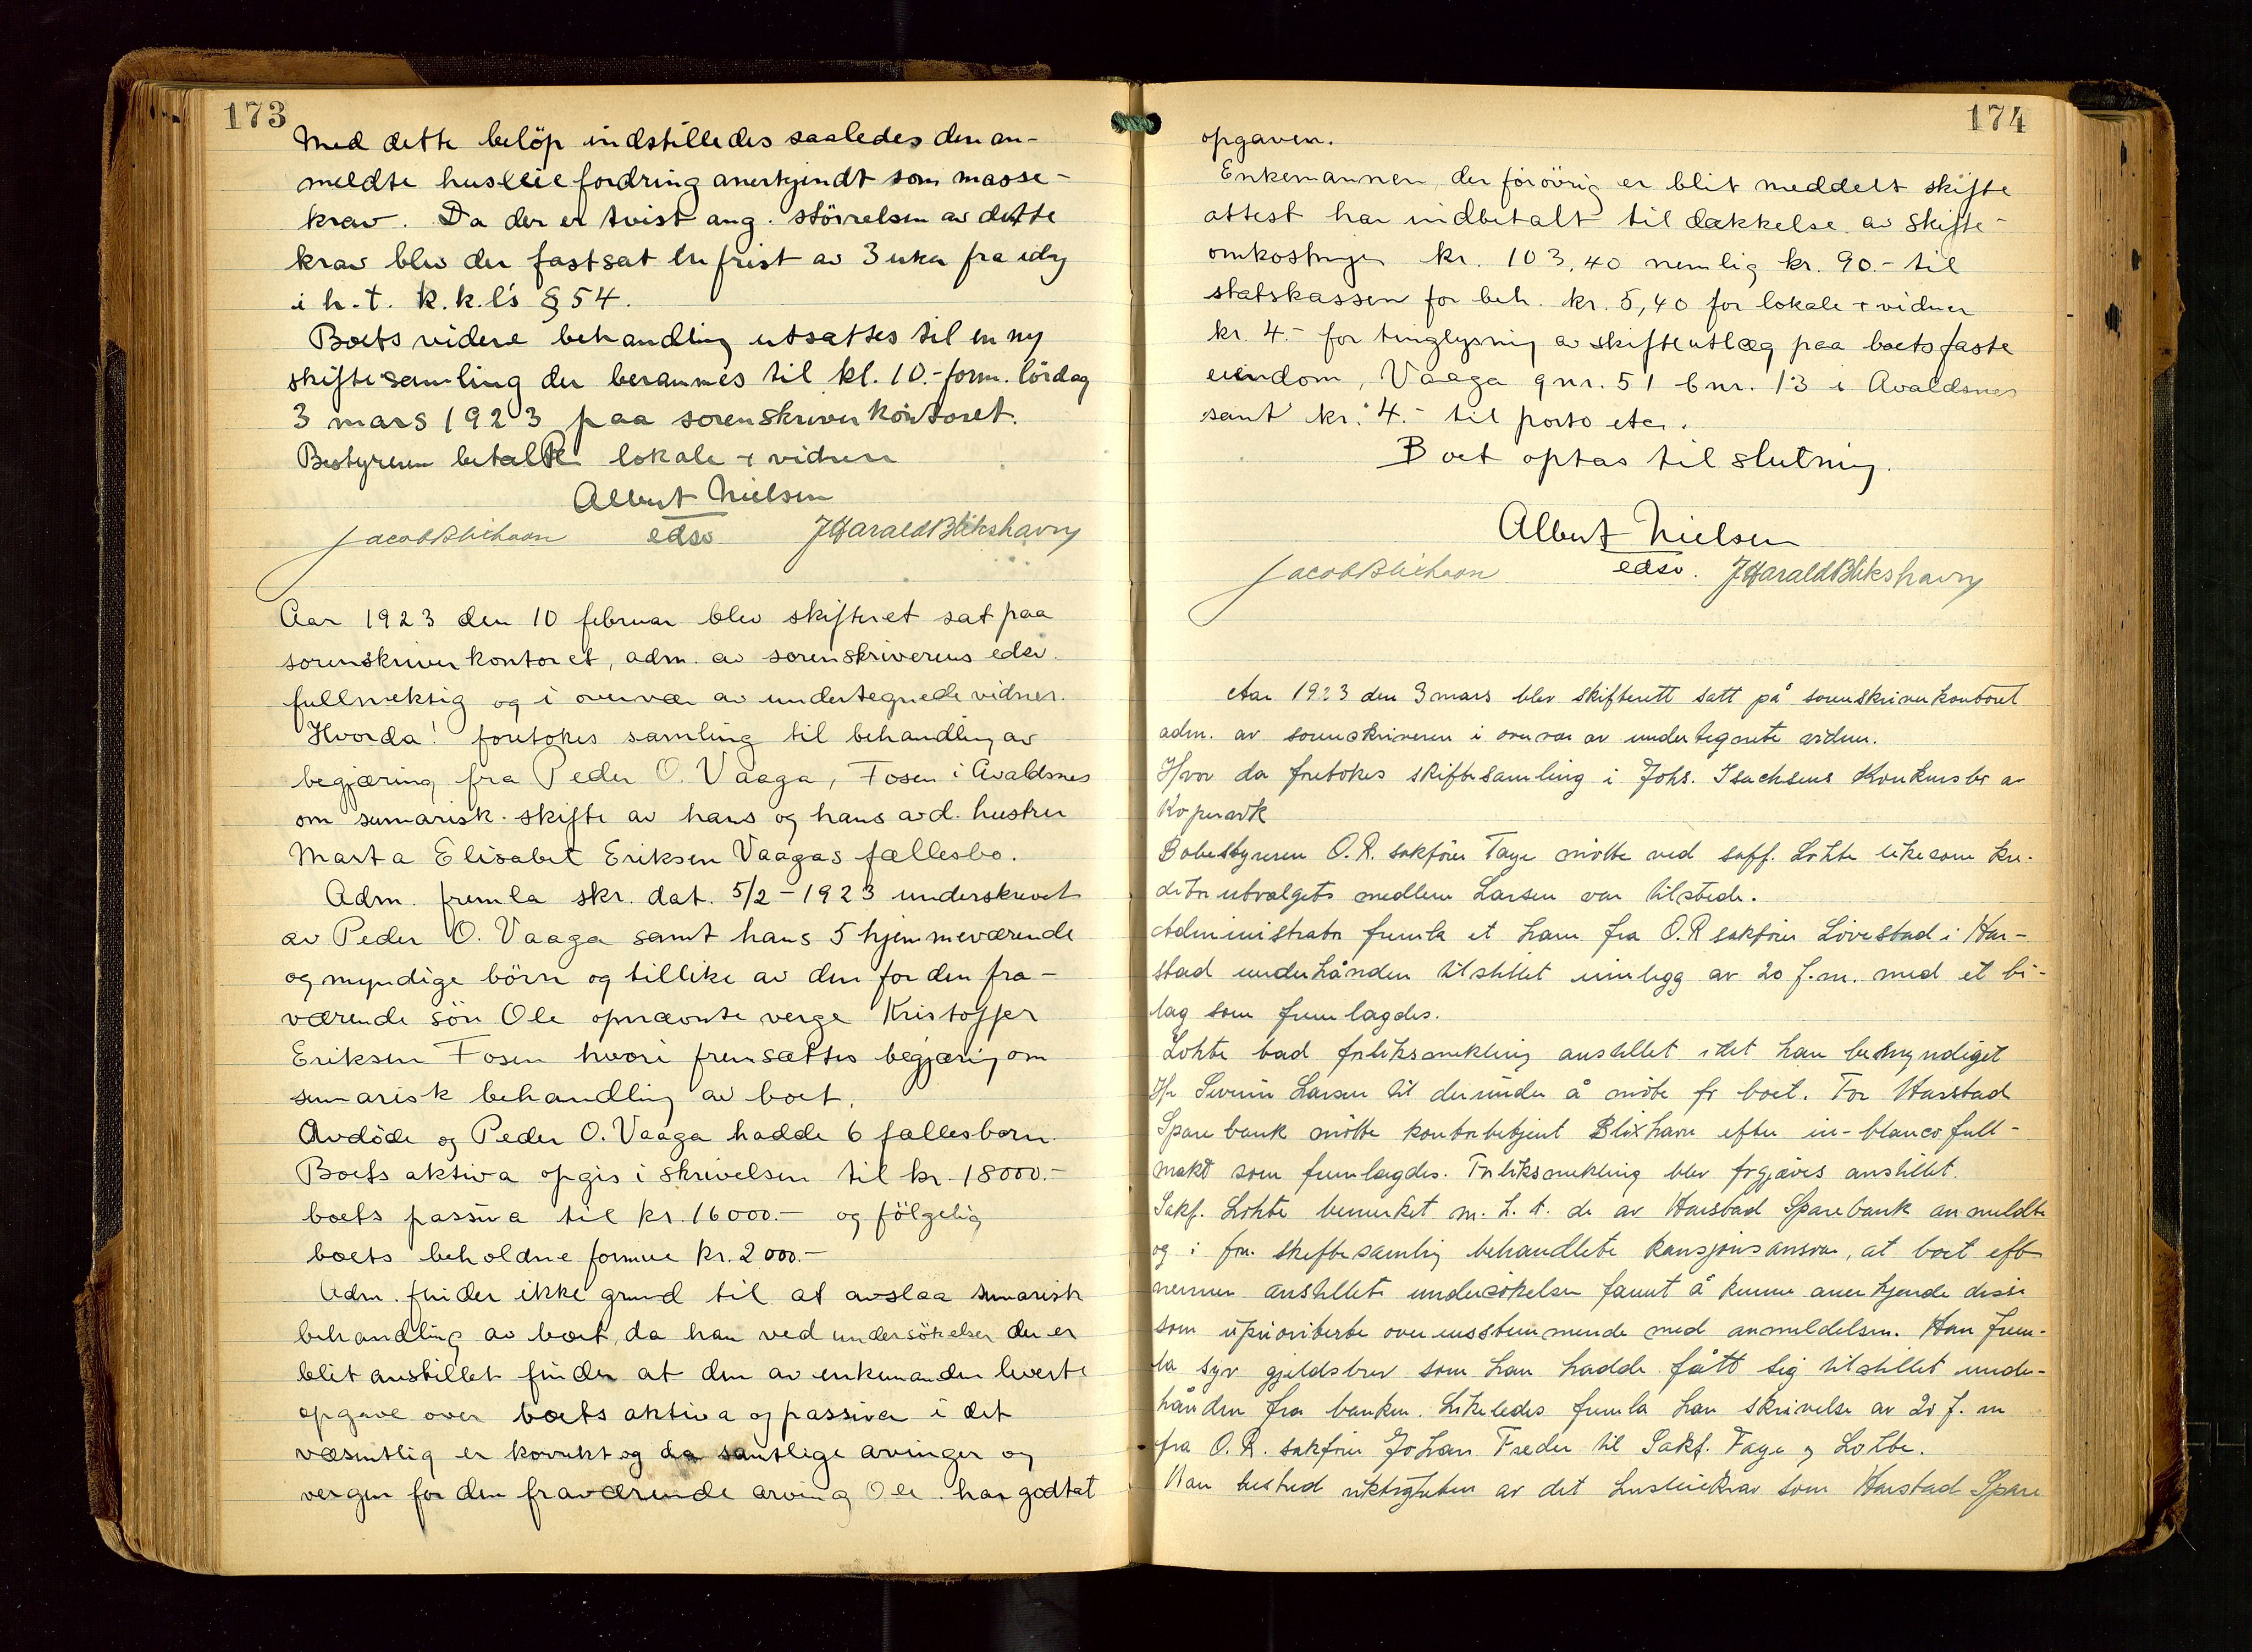 173
Med dette beløp indstilledes saaledes den an-
meldte husleiefordring anerkjendt som masse-
krav. Da der er tvist ang. størrelsen av dette
krav blev der fastsat en frist av 3 uker fra idg
i h.t. k.k.l's § 54.
Boets videre behandling utsattes til en ny
skiftesamling der berammes til kl. 10.- form. lördag
3 mars 1923 paa sorenskriverkontoret.
Bestyreren betalte lokale + vidner
Albert Nielsen
edsv
JHarald Blikshavn
Aar 1923 den 10 februar blev skifteret sat paa
sorenskriverkontoret, adm. av sorenskriverens edsv.
fullmektig og i overvær av undertegnede vidner.
Hvorda! foretokes samling til behandling av
begjæring fra Peder O. Vaaga, Fosen i Avaldsnes
om sumarisk skifte av hans og hans avd. hustru
Marta Elisabet Eriksen Vaagas fællesbo.
Adm. fremla skr. dat. 5/2-1923 underskrevet
av Peder O. Vaaga samt hans 5 hjemmeværende
og myndige börn og tillike av den for den fra-
værende sön Ole opnævnte verge Kristoffer
Eriksen Fosen hvori fremsættes begjæring om
sumarisk behandling av boet.
Avdöde og Peder O. Vaaga hadde 6 fællesbarn.
Boets aktiva opgis i skrivelsen til kr. 18000.-
boets passiva til kr. 16000.- og fölgelig
boets beholdne formue kr. 2000.-
Adm. finder ikke grund til at avslaa sumarisk
behandling av boet, da han ved undersökelser der er
blit anstillet finder at den av enkemanden leverte
opgave over boets aktiva og passiva i det
væsentlig er korrekt og da samtlige arvinger og
vergen for den fraværende arving Ole har godtat
174
opgaven.
Enkemannen, der forövrig er blit meddelt skifte
attest har indbetalt til dækkelse av skifte-
omkostninger kr. 103,40 nemlig kr. 90.- til
statskassen for beh. kr. 5,40 for lokale + vidner
kr. 4.- for tinglysning av skifteutlæg paa boets faste
eiendom, Vaaga gnr. 51 bnr. 13 i Avaldsnes
samt kr. 4.- til porto etc.
Boet optas til slutning.
Albert Nielsen
edsv.
JHarald Blikshavn
Aar 1923 den 3 mars blev skifterett satt på sorenskriverkontoret
adm. av sorenskriveren i overvær av undertegnete vidner.
Hvor da foretokes skiftesamling i Johs. Isachsens konkursbo av
Kopervik
Bobestyreren O.R. sakförer Faye mötte ved sakf. Lohte likesom kre-
ditorutvalgets medlem Larsen var tilstede.
Administrator fremla et ham fra O.R sakförer Lövestad i Har-
stad underhånden tilstillet innlegg av 20 f.m. med et bi-
lag som fremlagdes.
Lohte bad forliksmekling anstillet idet han bemyndiget
Hr Severin Larsen til derunder å möte for boet. For Harstad
Sparebank mötte kontorbetjent Blixhavn efter in-blanco full-
makt som fremlagdes. Forliksmekling blev forgjæves anstillet.
Sakf. Lohte bemerket m. h. t. de av Harstad Sparebank anmeldte
og i forr. skiftesamling behandlete kausjonsansvar, at boet efter
nermere anstillete undersökelser fannt å kunne anerkjende disse
som uprioriterte overensstemmende med anmeldelsen. Han frem-
la syv gjeldsbrev som han hadde fått sig tilstillet under-
hånden fra banken. Likeledes fremla han skrivelse av 20 f. m
fra O.R. sakförer Johan Freder til Sakf. Faye og Lohte.
Han bestred riktigheten av det husleiekrav som Harstad Spare